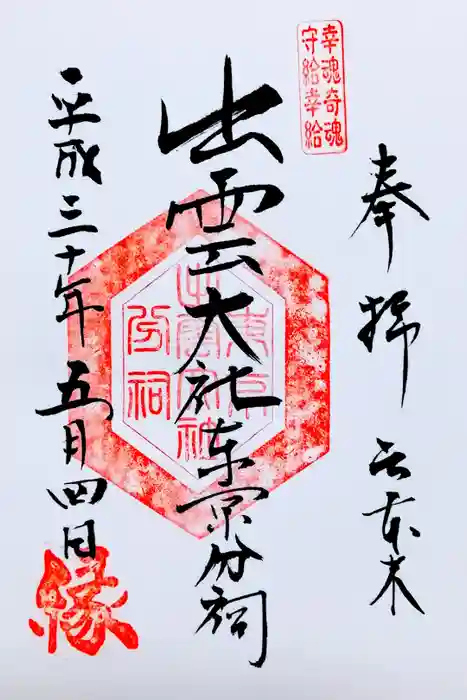 幸魂奇魂
守給幸給
奉拝 六本木
出雲大社東京分祠
東京
出雲大社
分祠
平成三十年五月四日
縁